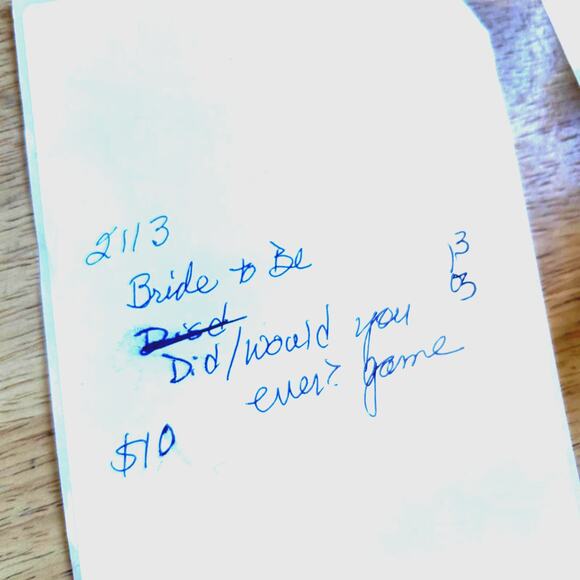 2113
Bride to Be
Did/would you
ever? game
$10